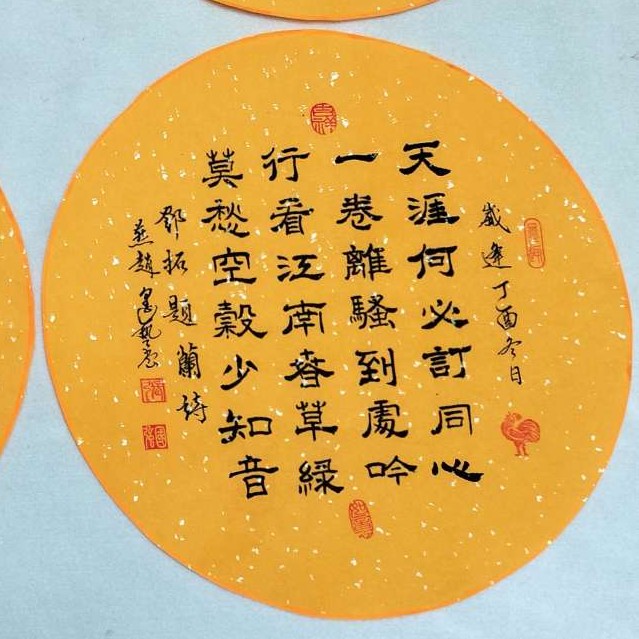 歲逢丁酉冬日
天涯何必訂同心
一卷離騷到處吟
行看江南春草綠
莫愁空穀少知音
鄧拓題蘭詩
燕趙